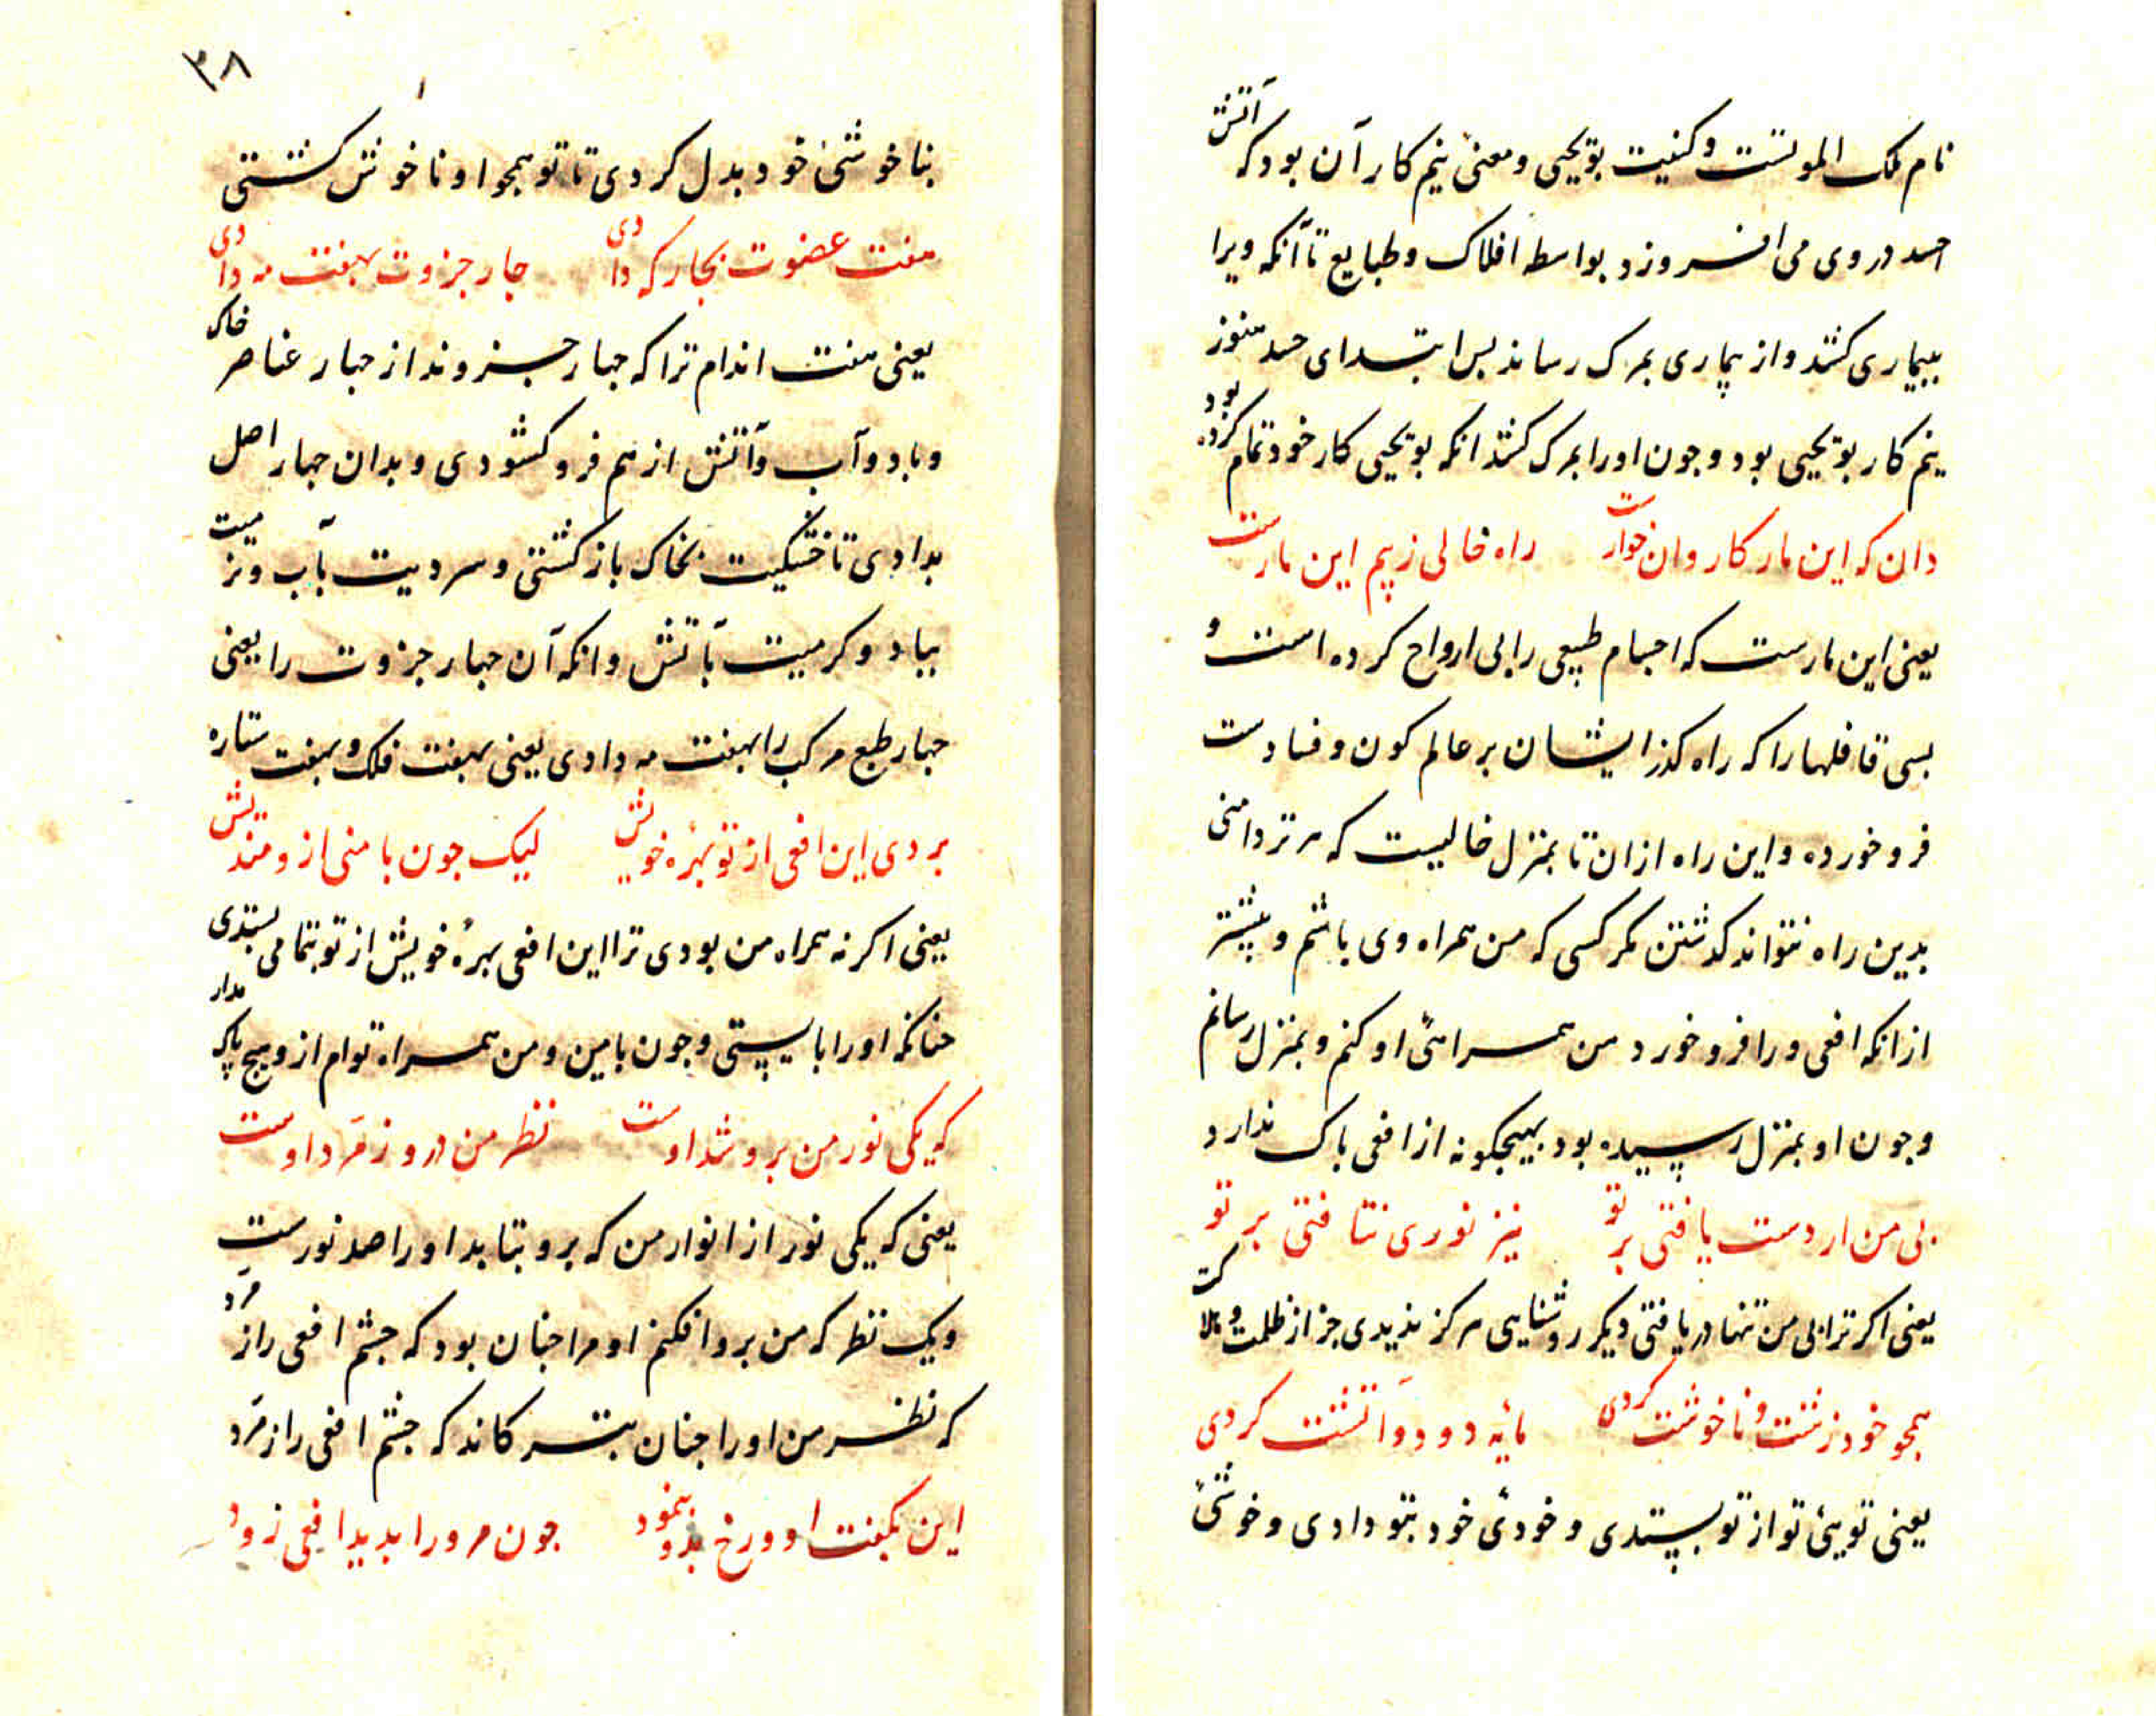 نام ملک الموتست و کنیت بویحیی و معنئ نیم کار آن بود که آتش
حسد در وی می افروزد بواسطه افلاک و طبایع تا آنکه ویرا
ببیماری کشد و از بیماری بمرک رساند بس ابتدای حسد هنوز
نیم کار بویحیی بود و جون او را بمرک کشد انکه بویحیی کار خود تمام کرده بود
دان که این مار کاروان خوارست راه خالی ز بیم این مارست
یعنی این مارست که اجسام طبیعی را بی ارواح کرده است و
بسی قافلها را که راه کذر ایشان بر عالم کون و فسادست
فرو خورده و این راه ازان تا بمنزل خالیست که هر تر دامنی
بدین راه نتواند کدشتن مکر کسی که من همراه وی باشم و بیشتر
ازانکه افعی ورا فرو خورد من همراهئ او کنم و بمنزل رسانم
و جون او بمنزل رسیده بود بهیجکونه از افعی باک ندارد
بی من ار دست یافتی بر تو نیز نوری نتافتی بر تو
یعنی اکر ترا بی من تنها دریافتی دیکر روشنایی هرکز ندیدی جز از ظلمت و هلاکت
همجو خود زشت و ناخوشت کردی مایه دود و آتشت کردی
یعنی تویئ تو از تو بستدی و خودئ خود بتو دادی و خوشئ
٣٨
بناخوشئ خود بدل کردی تا تو همجو او ناخوش کشتی
هفت عضوت بجار که دادی جار جزوت بهفت مه دادی
یعنی هفت اندام ترا که جهار جزوند از جهار عناصر خاک
و باد و آب و آتش از هم فرو کشودی و بدان جهار اصل
بدادی تا خشکیت بخاک باز کشتی و سردیت بآب و تریت
بباد و کرمیت بآتش و انکه آن جهار جزوت را یعنی
جهار طبع مرکب را بهفت مه دادی یعنی بهفت فلک و بهفت ستاره
بردی این افعی از تو بهرهٔ خویش لیک جون با منی ازو مندیش
یعنی اکر نه همراه من بودی ترا این افعی بهرهٔ خویش از تو بتمامی بستدی
جنانکه او را بایستی و جون با مین و من همراه توام ازو هیج باک مدار
که یکی نور من برو شد اوست نظر من درو زمرد اوست
یعنی که یکی نور از انوار من که برو بتابد او را صد نورست
و یک نظر که من برو افکنم او مرا جنان بود که جشم افعی را زمرد
که نظر من او را جنان بترکاند که جشم افعی را زمرد
این بکفت او و رخ بدو بنمود جون مرورا بدید افعی زود